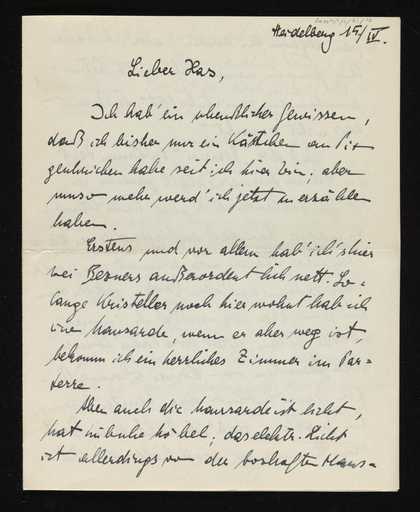 Heidelberg 15/IV.
Lieber Has,
Ich hab' ein schreckliches Gewissen,
daß ich bisher nur ein Kärtchen an Sie
geschrieben habe seit ich hier bin; aber
umso mehr werd' ich jetzt zu erzählen
haben.
Erstens und vor allem hab' ich's hier
bei Bezners außerordentlich nett. So-
lange Kristeller noch hier wohnt hab ich
eine Mansarde, wenn er aber weg ist,
bekomm ich ein herrliches Zimmer im Par=
terre.
Aber auch die Mansarde ist licht,
hat hübsche Möbel; das elektr. Licht
ist allerdings von der boshaften Haus=